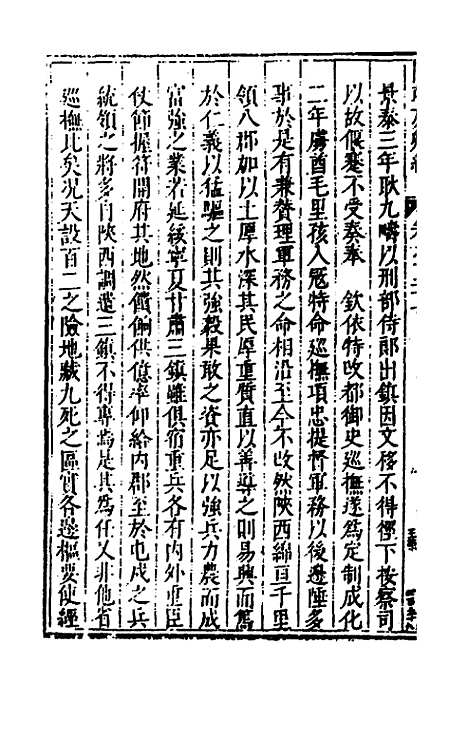 景泰三年耿九疇以刑部侍郎出鎮因文移不得徑下按察司
以故偃蹇不受奏奉　欽依特改都御史巡撫遂為定制成化
二年虜酋毛里孩入寇特命巡撫項忠提督軍務以後邊陲多
事於是有兼贊理軍務之命相沿至今不改然陝西綿亘千里
領八郡加以土厚水深其民厚重質直以善導之則易興而篤
於仁義以猛驅之則其強毅果敢之資亦足以強兵力農而成
富強之業若延綏寧夏甘肅三鎮雖俱宿重兵各有內外重臣
仗節握符開府其地然饋餉供億率仰給內郡至於屯戍之兵
統領之將多自陝西調遣三鎮不得專焉是其為任又非他省
巡撫比矣況天設百二之險地藏九死之區實各邊樞要使經